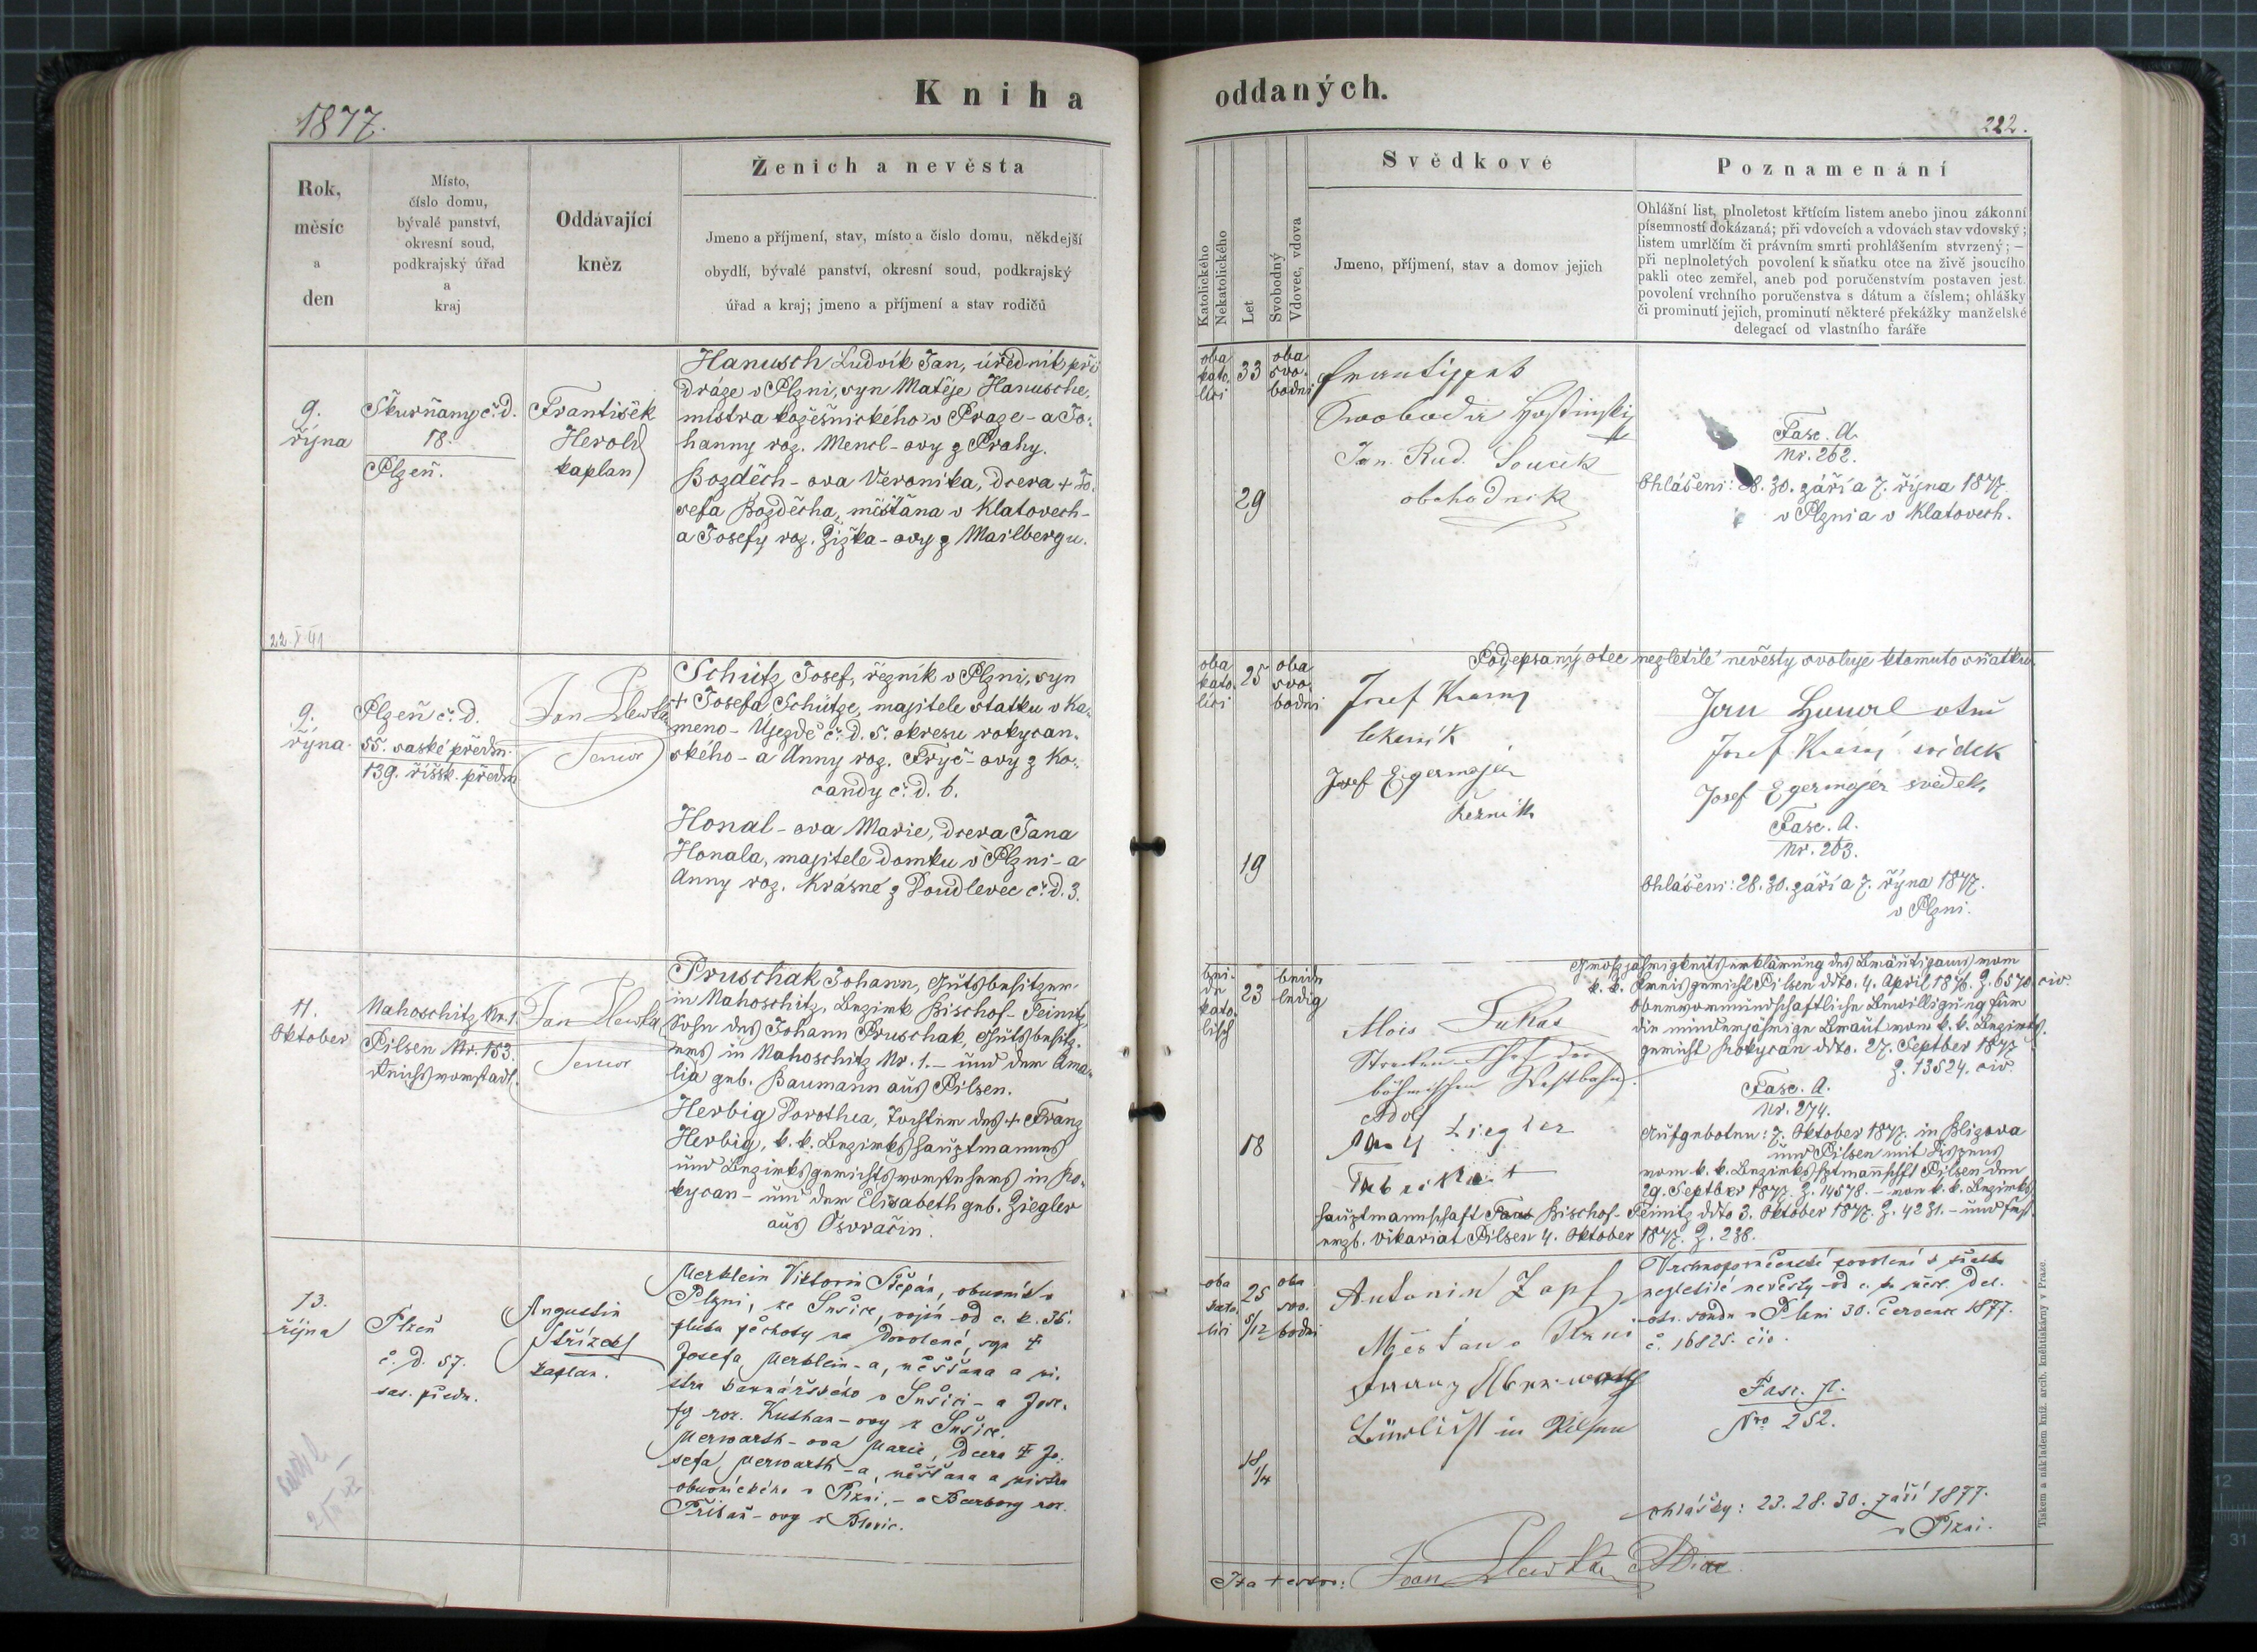 Kniha
oddaných.
1877.
222.
Rok,
měsíc
a
den
Místo,
číslo domu,
bývalé panství,
okresní soud,
podkrajský úřad
a
kraj
Oddávající
kněz
Ženich a nevěsta
Jmeno a příjmení, stav, místo a číslo domu, někdejší
obydlí, bývalé panství, okresní soud, podkrajský
úřad a kraj; jmeno a příjmení a stav rodičů
Katolického
Nekatolického
Let
Svobodný
Vdovec, vdova
Svědkové
Jmeno, příjmení, stav a domov jejich
Poznamenání
Ohlášní list, plnoletost křtícím listem anebo jinou zákonní
písemností dokázaná; při vdovcích a vdovách stav vdovský;
listem umrlčím či právním smrti prohlášením stvrzený; —
při neplnoletých povolení k sňatku otce na živě jsoucího
pakli otec zemřel, aneb pod poručenstvím postaven jest
povolení vrchního poručenstva s dátum a číslem; ohlášky
či prominutí jejich, prominutí některé překážky manželské
delegací od vlastního faráře
9.
října
Škurňany č. d.
18.
Plzeň.
František
Herold
kaplan
Hanusch Ludvík Jan, úředník při
dráze v Plzni, syn Matěje Hanusche,
mistra kožešnického v Praze - a Jo-
hanny roz. Mencl-ovy z Prahy.
Bozděch-ova Veronika, dcera + Jo-
sefa Bozděcha, měšťana v Klatovech -
a Josefy roz. Žižka-ovy z Mailbergu.
oba
kato-
líci
33
oba
svo-
bodni
29
Jan. Rud. Souček
obchodník
Fasc. A.
Nr. 262.
Ohlášeni: 28. 30. září a 7. října 1877.
v Plzni a v Klatovech.
9.
října
Plzeň č. d.
55. saské předm.
139. říšsk. předm.
Jan Hlewka
Senior
Schütz Josef, řezník v Plzni, syn
+ Josefa Schütze, majitele statku v Ka-
meno-Ujezdě č. d. 5. okresu rokycan-
ského - a Anny roz. Fryč-ovy z Ko-
candy č. d. 6.
Honal-ova Marie, dcera Jana
Honala, majitele domku v Plzni - a
Anny roz. Krásné z Doudlevec č. d. 3.
oba
kato-
líci
25
oba
svo-
bodni
19
Podepsaný otec nezletilé nevěsty svoluje k tomuto sňatku.
Josef Krasny
lekarník
Josef Egermajer
Řezník
Jan Honal otec
Josef Krásný svědek
Josef Egermajer svědek
Fasc. A.
Nr. 263.
Ohlášeni: 28. 30. září a 7. října 1877.
v Plzni.
11.
Oktober
Mahoschitz Nr. 1.
Pilsen Nr. 153.
Reichsvorstadt.
Jan Hlewka
Senior
Pruschak Johann, Gutsbesitzer
in Mahoschitz, Bezirk Bischof-Teinitz,
Sohn des Johann Pruschak, Gutsbesitz-
ers in Mahoschitz Nr. 1. - und der Ama-
lia geb. Baumann aus Pilsen.
Herbig Dorothea, Tochter des + Franz
Herbig, k. k. Bezirkshauptmannes
und Bezirksgerichtsvorstehers in Ro-
kycan - und der Elisabeth geb. Ziegler
aus Osvračin.
bei-
de
kato-
lisch
23
beide
ledig
18
Alois Lukas
böhmischen Westbahn.
Adolf
Ziegler
Fabrikant
Grossjährigkeitserklärung des Bräutigams vom
k. k. Kreisgericht Pilsen ddto. 4. April 1876. Z. 6570 civ.
Obervormundschaftliche Bewilligung für
die minderjährige Braut vom k. k. Bezirks-
gericht Rokycan ddto. 27. Septber 1877
Z. 13524. civ.
Fasc. A.
Nr. 274.
Aufgeboten: 7. Oktober 1877. in Blizova
und Pilsen mit Dispens
vom k. k. Bezirkshptmannschft Pilsen den
29. Septber 1877. Z. 14578. - von k. k. Bezirks-
hauptmannschaft Bischof-Teinitz ddto 3. Oktober 1877. Z. 4231. - und
erzb. Vikariat Pilsen 4. Oktober 1877. Z. 238.
13.
října
Plzeň
č. d. 57.
sas. předm.
Augustin
Střížek
kaplan.
Merklein Viktorin Štěpán, obuvník v
Plzni, ze Sušice, vojín od c. k. 35.
pluku pěchoty na dovolené, syn +
Josefa Merklein-a, měšťana a mi-
stra v Sušici - a Jose-
fy roz. Kuthan-ovy z Sušice.
Merwarth-ova Marie, dcera + Jo-
sefa Merwarth-a, měšťana a mistra
obuvnického v Plzni, - a Barbory roz.
Přibaň-ovy z Blovic.
oba
kato-
líci
25
5/12
oba
svo-
bodni
18
1/4
Antonín Zapf
Měšťan v Plzni
Franz
in Pilsen
Vrchnoporučenské povolení k
nezletilé nevěsty od c. k. měst. del.
okr. soudu v Plzni 30. července 1877.
č. 16825. civ.
Fasc. A.
Nro 252.
ohlášky: 23. 28. 30. září 1877.
v Plzni.
Jan Hlewka
Tiskem a nákladem kníž. arcib. kněhtiskárny v Praze.